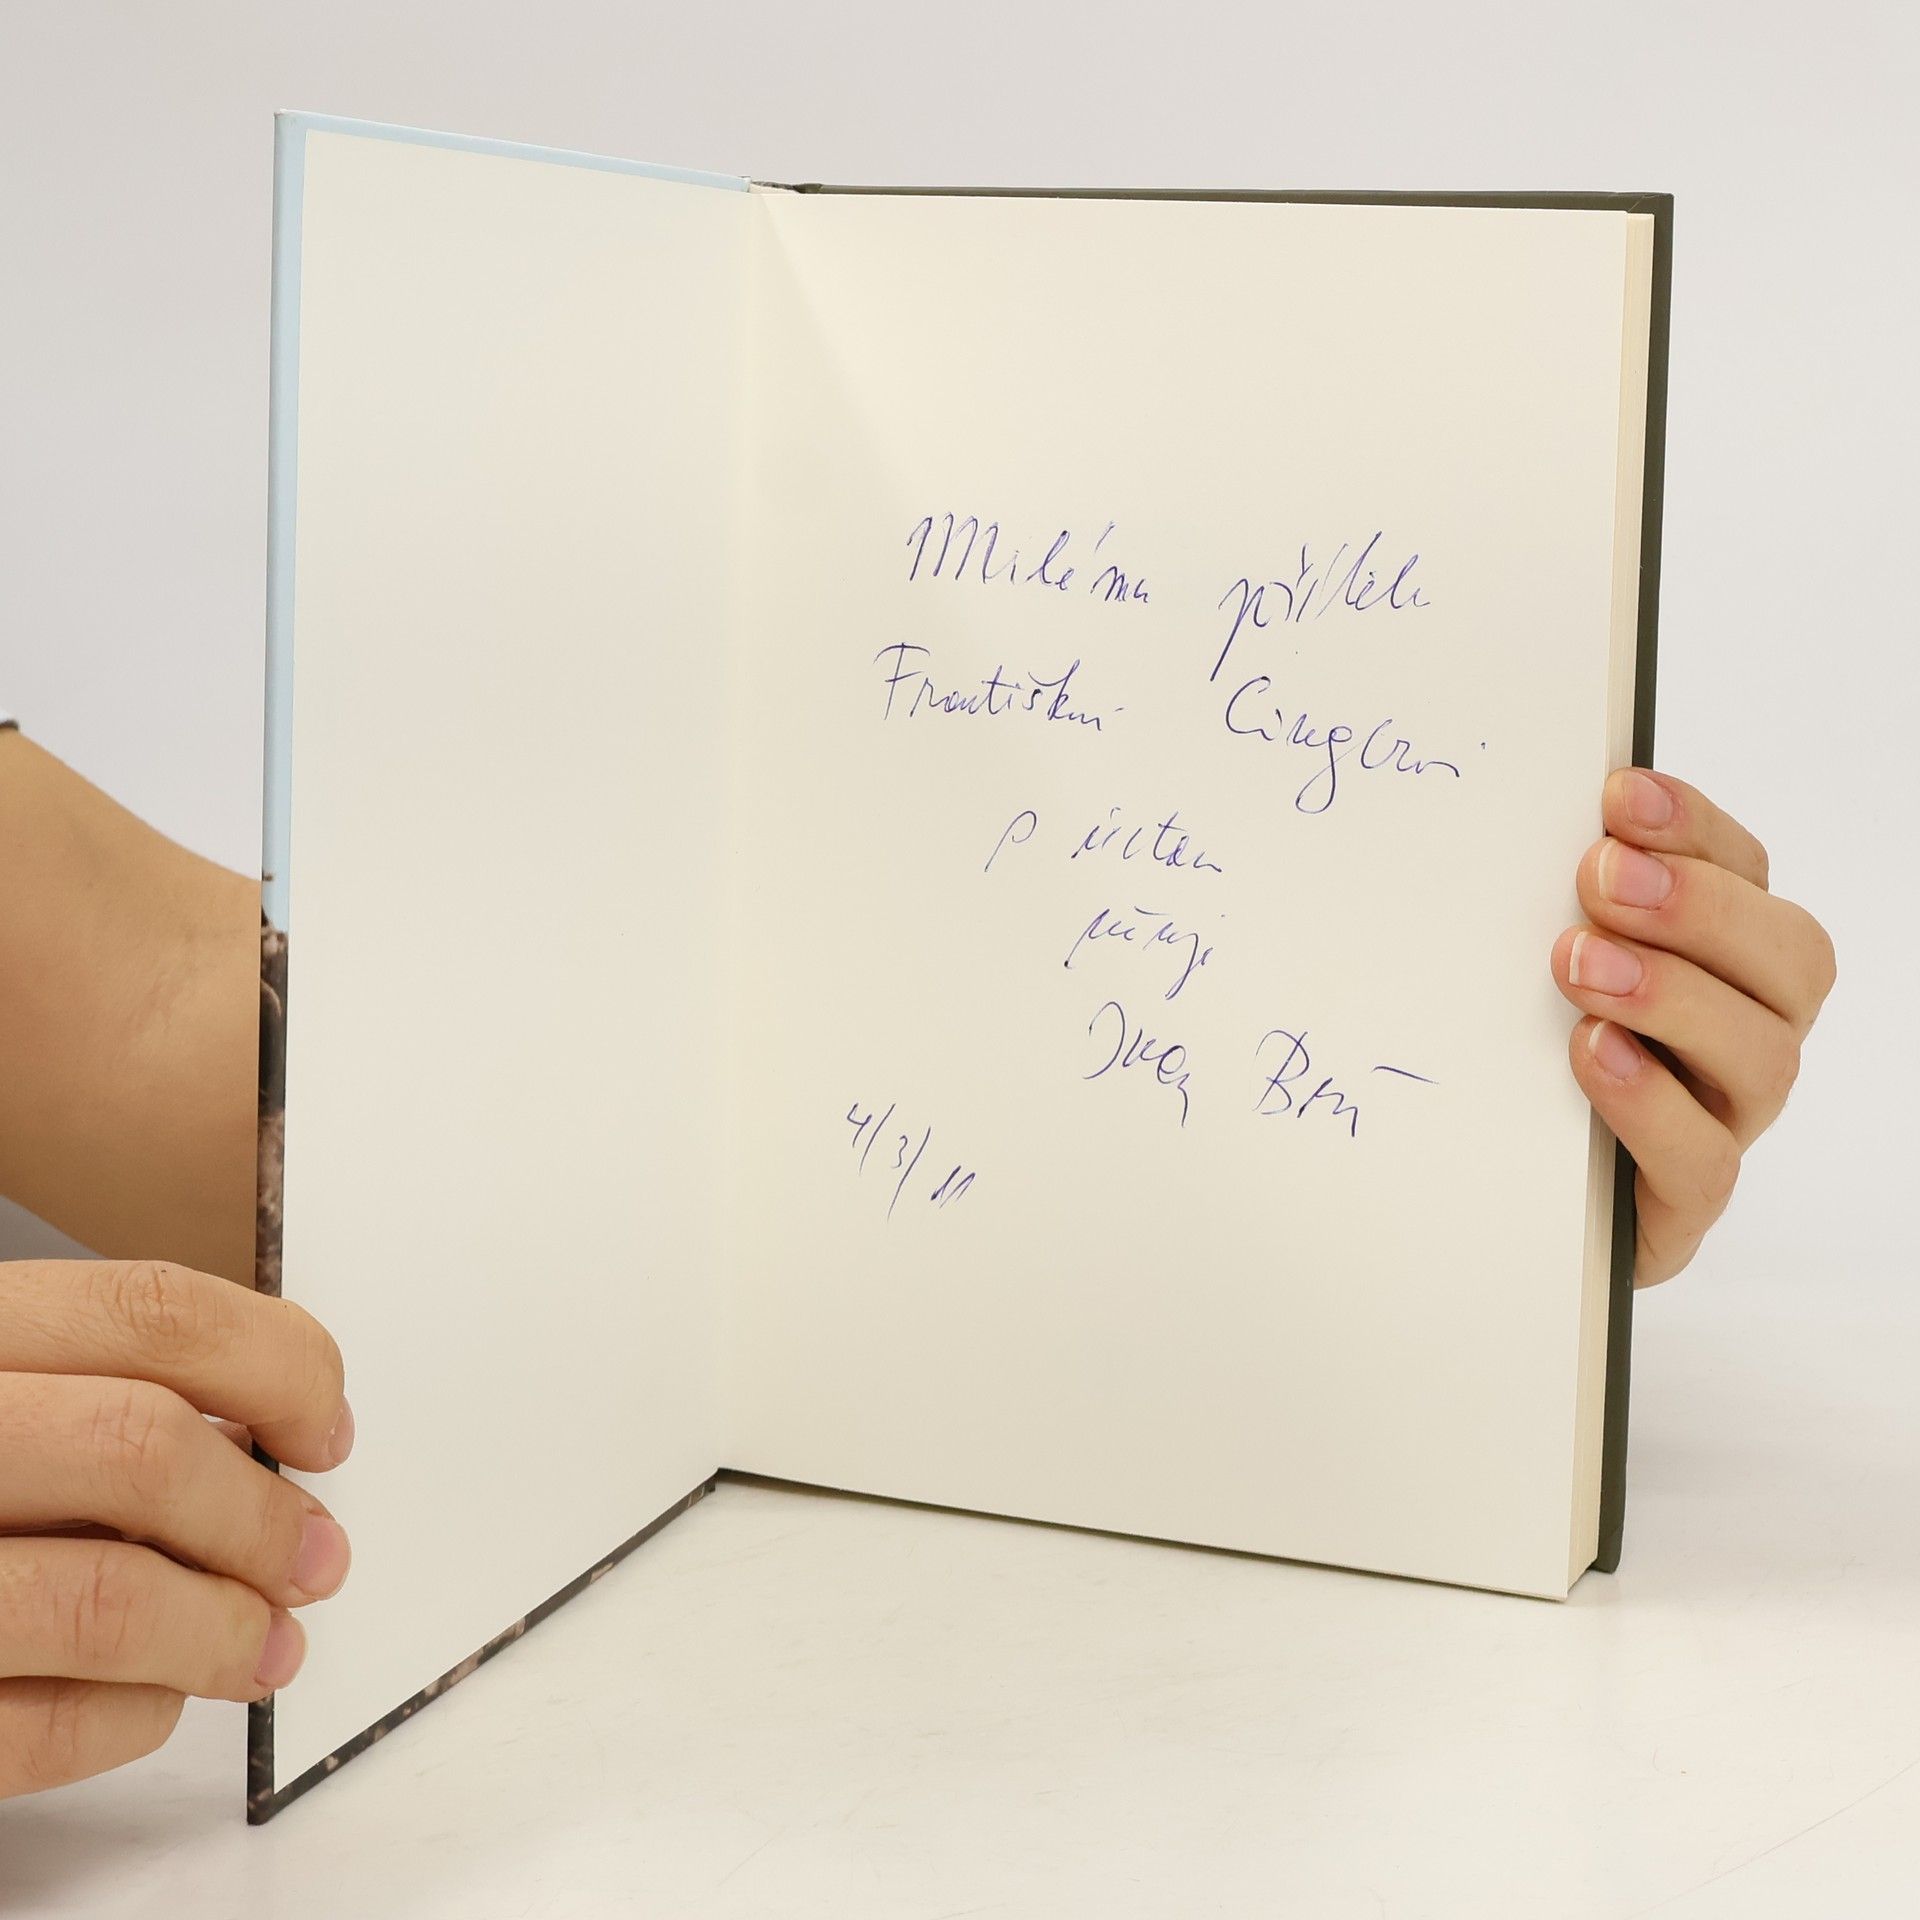 Milému příteli
Františkovi Cingerovi
s úctou
věnuje
Ivan Brů
4/3/11